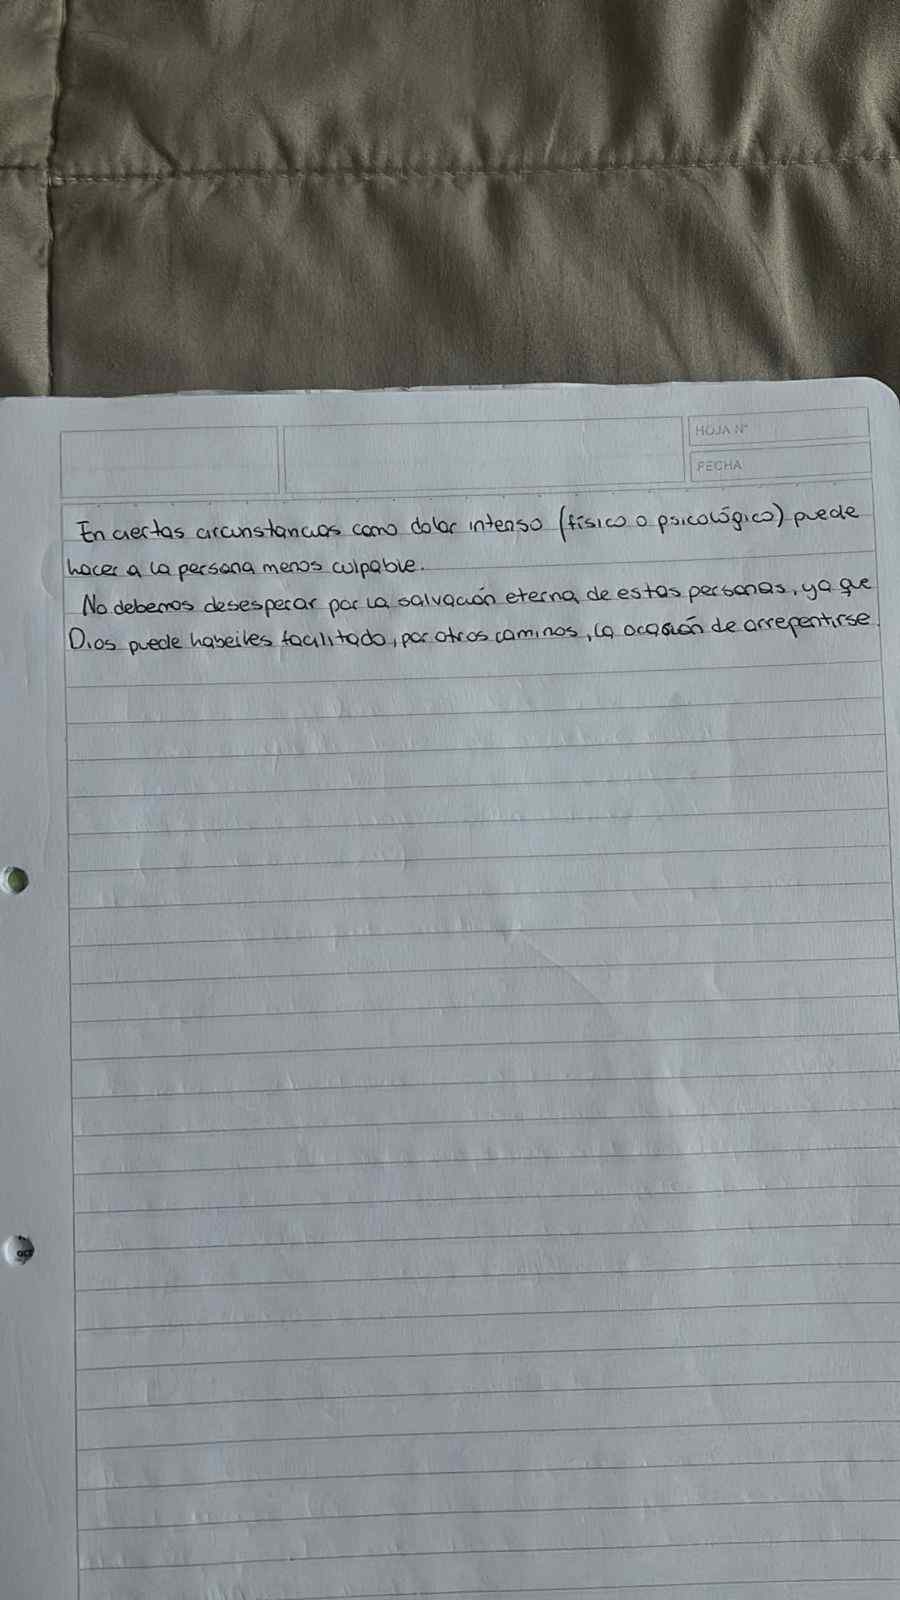 HOJA N°
FECHA
En ciertas circunstancias como dolor intenso (físico o psicológico) puede
hacer a la persona menos culpable.
No debemos desesperar por la salvación eterna de estas personas, ya que
Dios puede haberles facilitado, por otros caminos, la ocasión de arrepentirse.